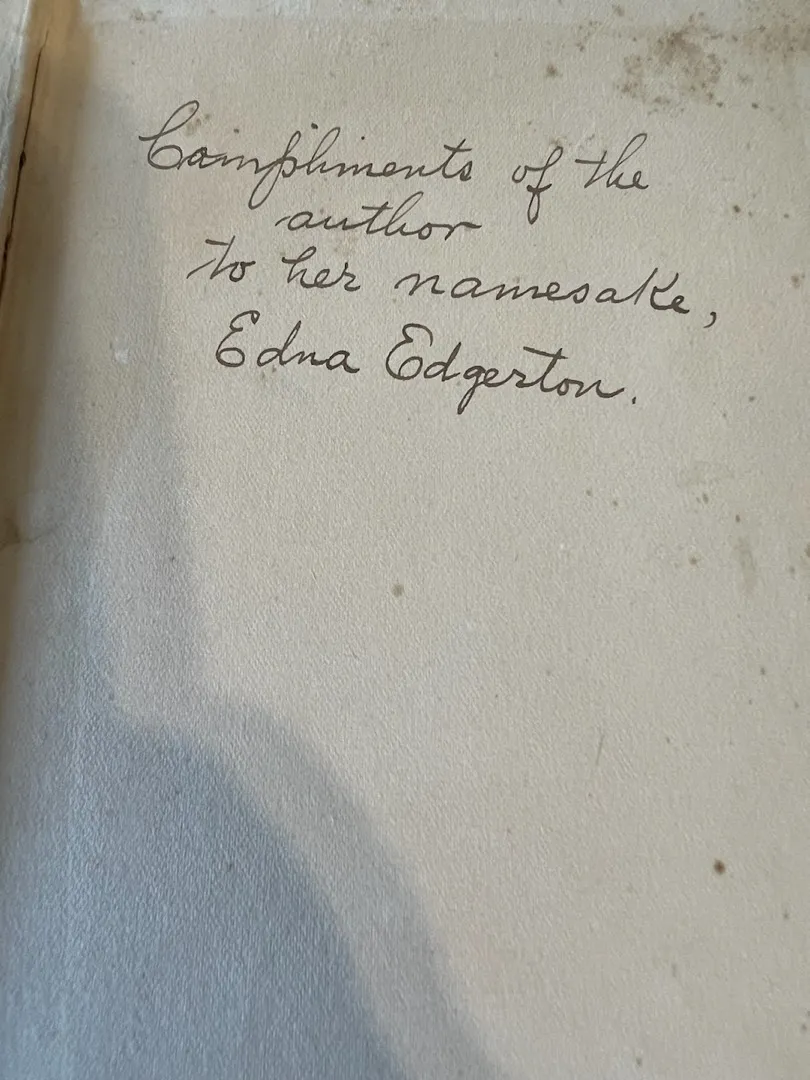 Compliments of the
author
to her namesake,
Edna Edgerton.